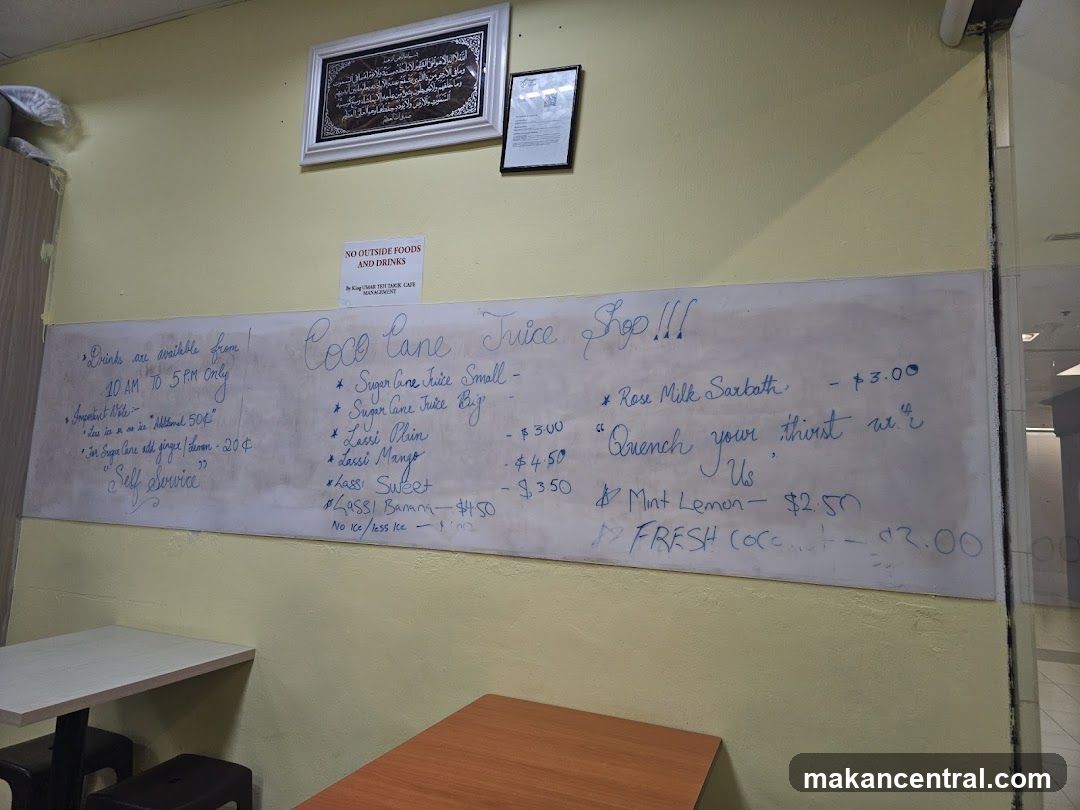 NO OUTSIDE FOODS
AND DRINKS
By King UMAR TEH TARIK CAFE
MANAGEMENT
* Drinks are available from
10 AM TO 5 P.M Only
* Important Note:-
* Less ice or no ice "Additional 50¢"
* For Sugar Cane add ginger/Lemon - 20¢
"Self Service"
Coco Cane Juice Shop!!!
* Sugar Cane Juice Small -
* Sugar Cane Juice Big -
* Lassi Plain - $3.00
* Lassi Mango - $4.50
* Lassi Sweet - $3.50
* Lassi Banana — $4.50
No Ice/less Ice —
* Rose Milk Sarbath. - $3.00
"Quench your thirst
Us"
Mint Lemon — $2.50
FRESH
makancentral.com